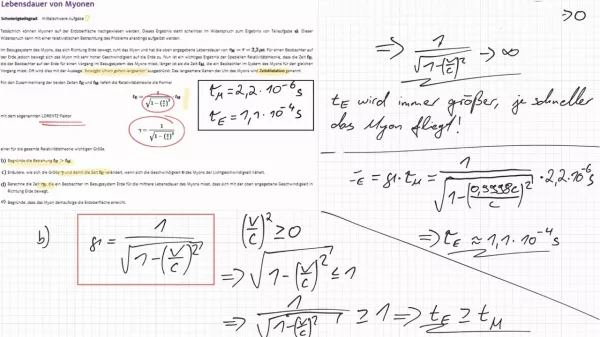 Lebensdauer von Myonen
Schwierigkeitsgrad: mittelschwere Aufgabe
Tatsächlich können Myonen auf der Erdoberfläche nachgewiesen werden. Dieses Ergebnis steht scheinbar im Widerspruch zum Ergebnis von Teilaufgabe a). Dieser
Widerspruch kann mit einer relativistischen Betrachtung des Problems allerdings aufgelöst werden.
Im Bezugssystem des Myons, das sich Richtung Erde bewegt, ruht das Myon und hat die oben angegebene Lebensdauer von t_M = τ = 2,2 μs. Für einen Beobachter auf
der Erde jedoch bewegt sich das Myon mit sehr hoher Geschwindigkeit auf die Erde zu. Nun ist ein wichtiges Ergebnis der Speziellen Relativitätstheorie, dass die Zeit t_E,
die der Beobachter auf der Erde für einen Vorgang im Bezugssystem des Myons misst, länger ist als die Zeit t_M, die ein Beobachter im System des Myons für den gleichen
Vorgang misst. Oft wird dies mit der Aussage "bewegte Uhren gehen langsamer" ausgedrückt. Das langsamere Gehen der Uhr des Myons wird Zeitdilatation genannt.
Für den Zusammenhang der beiden Zeiten t_M und t_E liefert die Relativitätstheorie die Formel
t_E = 1/√(1 − (v/c)²) · t_M
mit dem sogenannten LORENTZ-Faktor
γ = 1/√(1 − (v/c)²)
einer für die gesamte Relativitätstheorie wichtigen Größe.
b) Begründe die Beziehung t_E > t_M.
c) Erläutere, wie sich die Größe γ und damit die Zeit t_E verändert, wenn sich die Geschwindigkeit v des Myons der Lichtgeschwindigkeit nähert.
d) Berechne die Zeit t_E, die ein Beobachter im Bezugssystem Erde für die mittlere Lebensdauer des Myons misst, das sich mit der oben angegebenen Geschwindigkeit in
Richtung Erde bewegt.
e) Begründe, dass das Myon demzufolge die Erdoberfläche erreicht.
τ_M = 2,2 · 10⁻⁶ s
τ_E = 1,1 · 10⁻⁴ s
b)
γ = 1/√(1 − (v/c)²)
(v/c)² ≥ 0
⇒ √(1 − (v/c)²) ≤ 1
⇒ 1/√(1 − (v/c)²) ≥ 1 ⇒ t_E ≥ t_M
>0
⇒ 1/√(1 − (v/c)²) → ∞
t_E wird immer größer, je schneller
das Myon fliegt!
τ_E = γ · τ_M = 1/√(1 − (0,9998c/c)²) · 2,2 · 10⁻⁶ s
⇒ τ_E ≈ 1,1 · 10⁻⁴ s